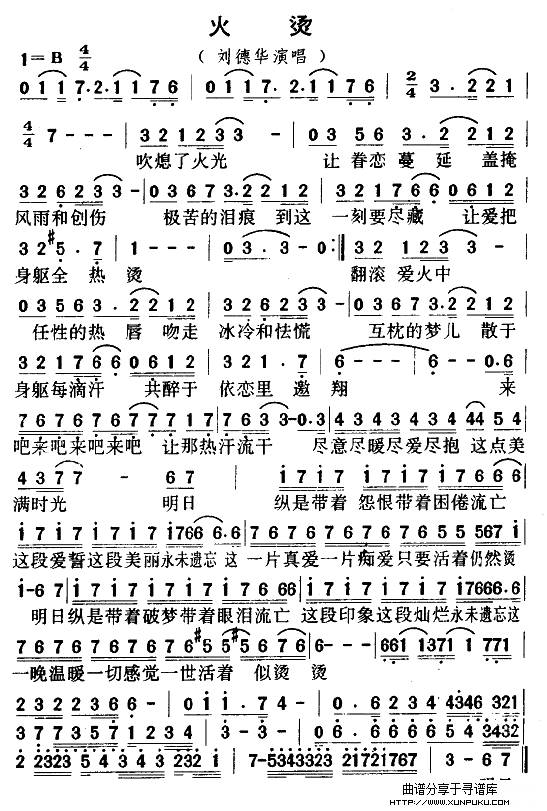 火 烫
1=B 4/4 （刘德华演唱）
0 1 1 7. 2. 1 1 7 6 | 0 1 1 7. 2. 1 1 7 6 | 0 1 1 7. 2. 1 1 7 6 | 2/4 3. 2 2 1 |
4/4 7 - - - | 3 2 1 2 3 3 - | 0 3 5 6 3. 2 2 1 2 |
吹熄了火光 让 眷恋 蔓 延 盖掩
3 2 6 2 3 3 - | 0 3 6 7 3. 2 2 1 2 | 3 2 1 7 6 6 0 6 1 2 |
风雨和创伤 极苦的泪痕 到这 一刻要尽藏 让爱把
3 2 #5. 7 | 1 - - - | 0 3. 3 - 0 :| 3 2 1 2 3 3 - |
身躯全 热 烫 翻滚 爱火中
0 3 5 6 3. 2 2 1 2 | 3 2 6 2 3 3 - | 0 3 6 7 3. 2 2 1 2 |
任性的热 唇 吻走 冰冷和怯慌 互枕的梦儿 散于
3 2 1 7 6 6 0 6 1 2 | 3 2 1. 7 | 6 - - - | 6 - - 0. 6 |
身躯每滴汗 共醉于 依恋里 遨 翔 来
7 6 7 6 7 6 7 7 7 1 7 | 7 6 3 3 - 3 0. 3 | 4 3 4 3 4 3 4 4 4 5 4 |
吧来吧来吧来吧 让那热汗流干 尽意尽暖尽爱尽抱 这点美
4 3 7 7 - 6 7 | i 7 i 7 i 7 i 7 i 7 6 6 |
满时光 明日 纵是带着 怨恨带着困倦流亡
i 7 i 7 i 7 i 7 i 7 6 6 6. 6 | 7 6 7 6 7 6 7 6 5 5 5 6 7 i |
这段爱誓这段美丽永未遗忘 这 一片真爱一片痴爱只要活着仍然烫
i - 6 7 | i 7 i 7 i 7 i 7 i 7 6 6 | i 7 i 7 i 7 i 7 i 7 6 6 6. 6 |
明日纵是带着破梦带着眼泪流亡 这段印象这段灿烂永未遗忘这
7 6 7 6 7 6 7 6 #5 5 #5 6 7 6 | 6 - - - | 6 6 1 1 3 7 1 1 7 7 1 |
一晚温暖一切感觉一世活着 似烫 烫
2 3 2 2 3 2 6 6 - | 0 1 i. 7 - | 0. 6 2 3 4 4 3 4 6 3 2 1 |
3 7 7 3 5 7 1 2 3 4 | 3 - 3 - | 0. 6 6 5 4 5 3 4 3 2 |
2 2 3 2 3 5 4 3 4 3 2 3 2 1 | 7 - 5 3 4 3 3 2 3 2 1 7 2 1 7 6 7 | 3 - 6 7 |
曲谱分享于寻谱库
HTTP://WWW.XUNPUKU.COM